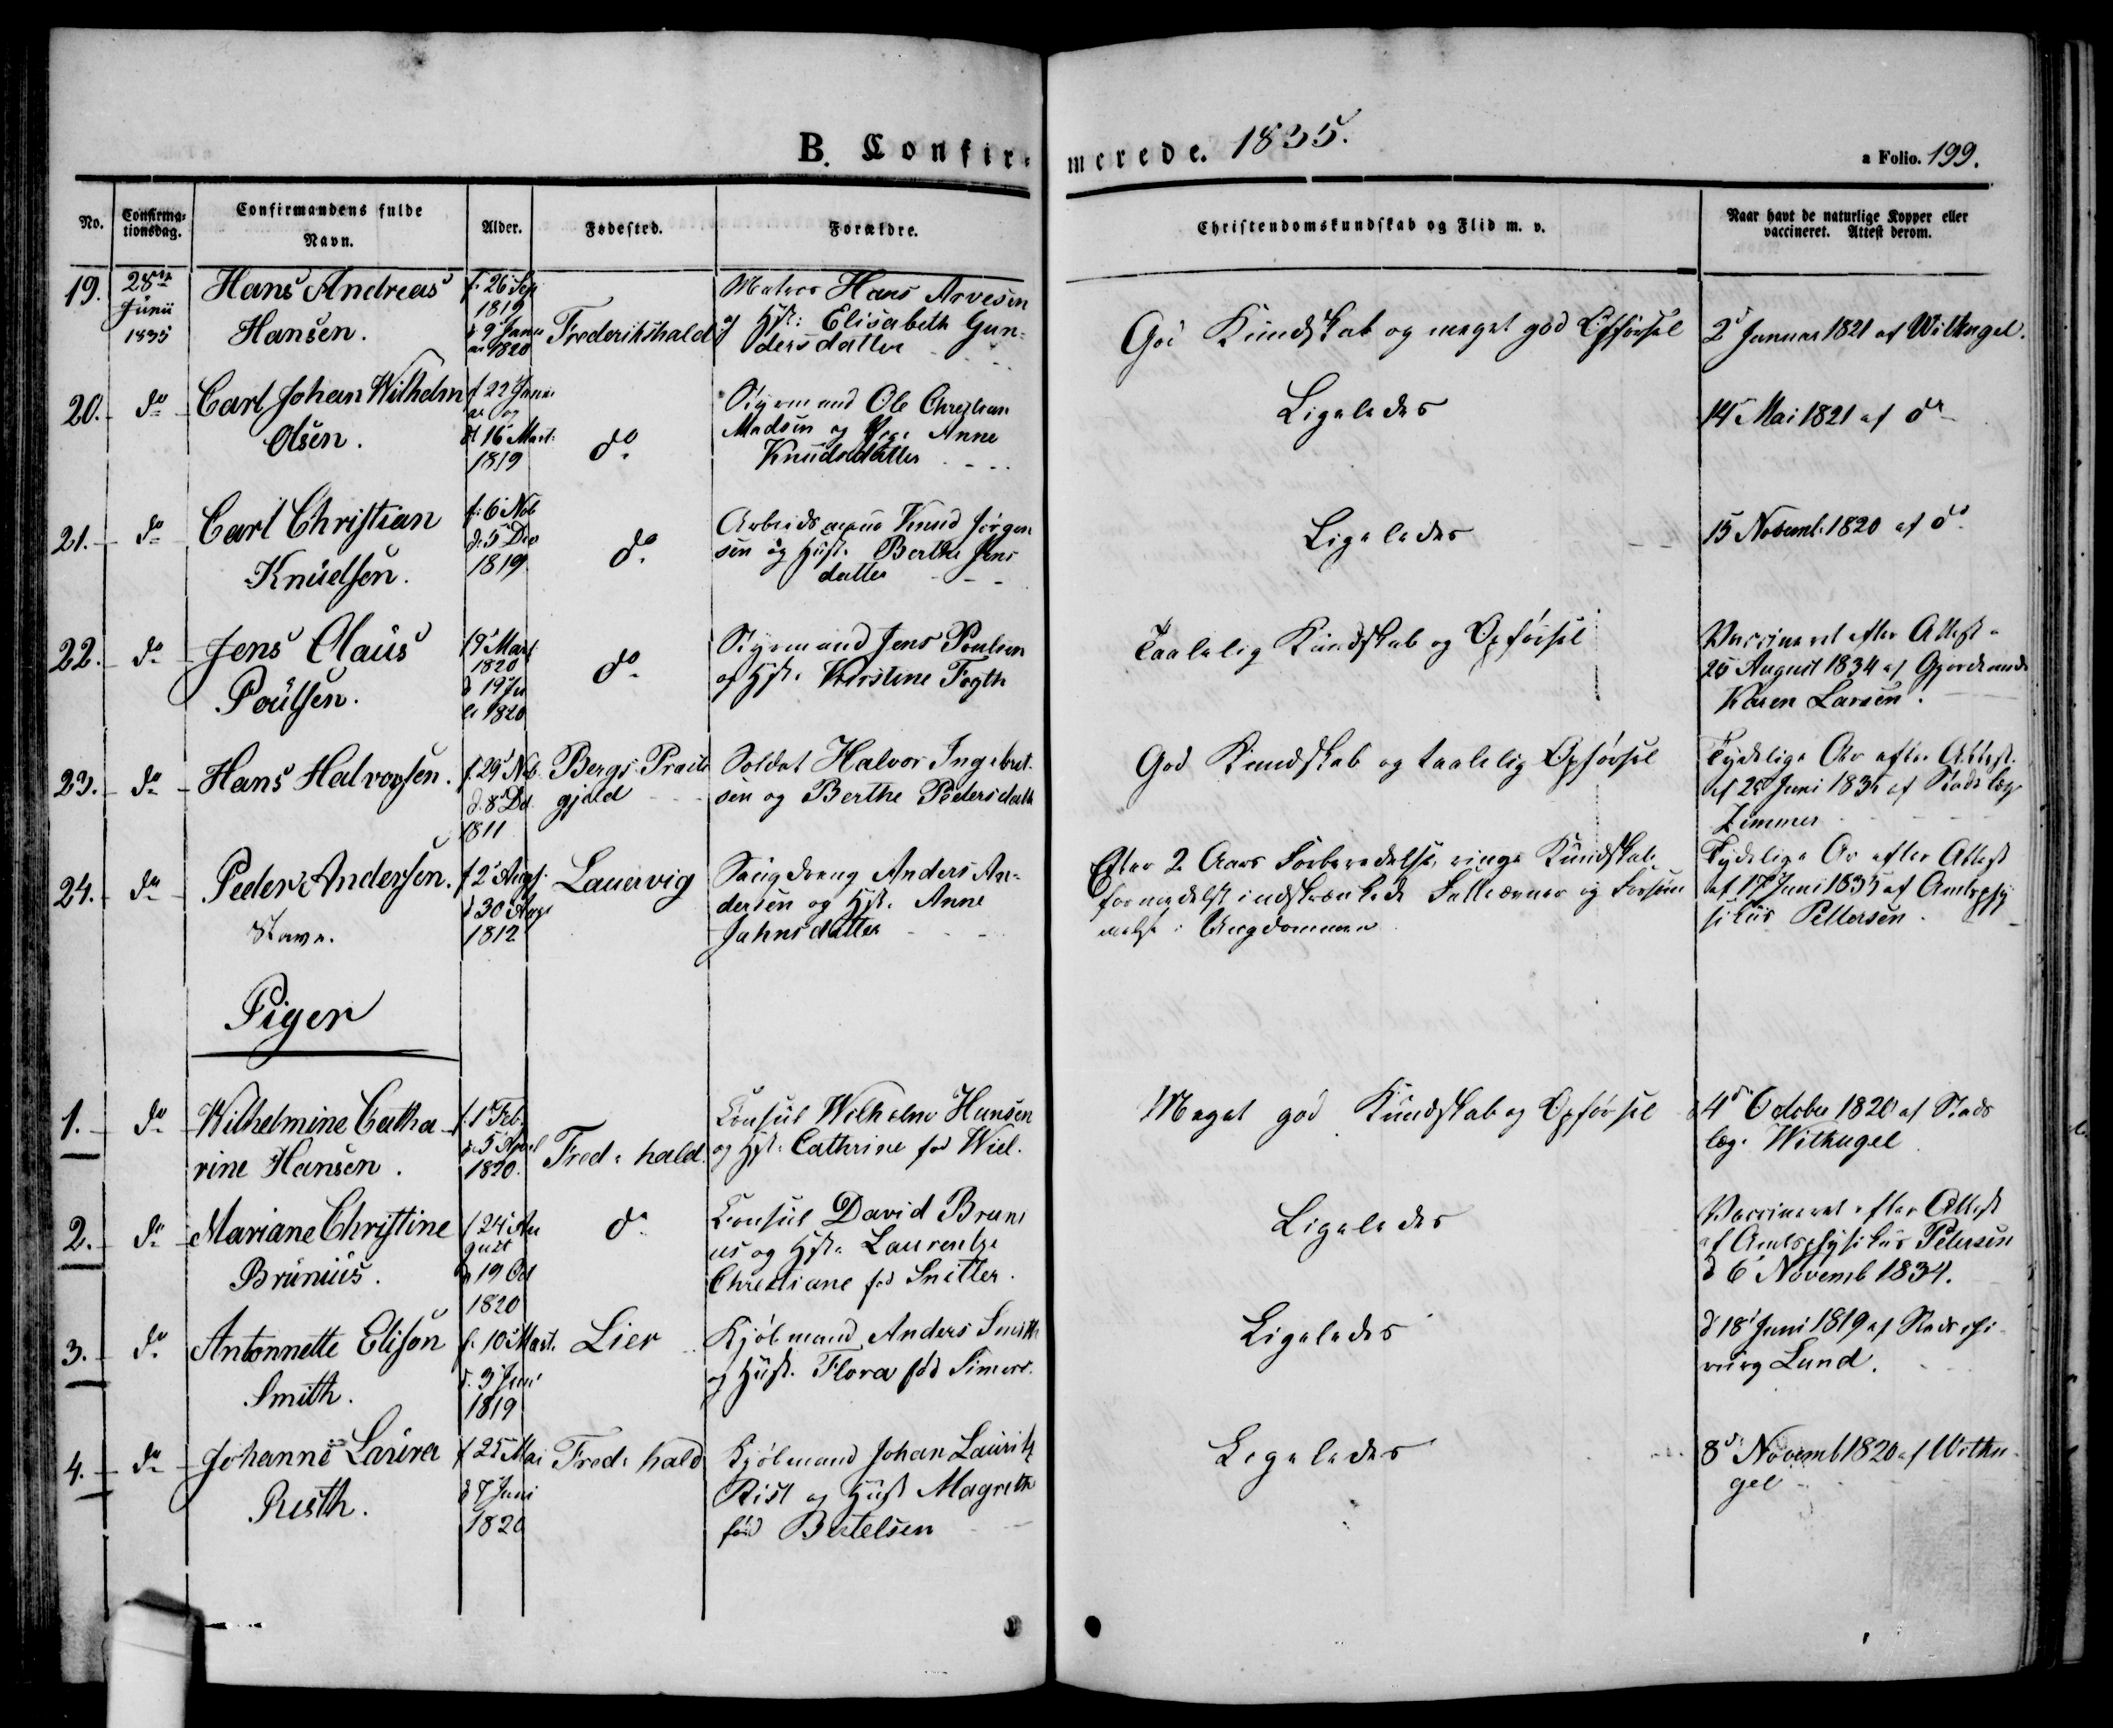 B. Confir-
merede. 1835.
a Folio. 199.
No.
Confirma-
tionsdag.
Confirmandens fulde
Navn.
Alder.
Fødested.
Forældre.
Christendomskundskab og Flid m. v.
Naar havt de naturlige Kopper eller
vaccineret. Attest derom.
19. 28de
Junii
1835
Hans Andreas
Hansen.
f. 26 Sep
1819
d 9 Janu
ar 1820
Frederikshald
Matros Hans Arvesen
og Hst: Elisabeth Gun-
dersdatter
God Kundskab og meget god Opførsel
2d Januar 1821 af Wilhugel.
20. do
Carl Johan Wilhelm
Olsen.
f 22 Janu
ar og
d 16 Mart:
1819
do
Styrmand Ole Christian
Madsen og Anne
Knudsdatter
Ligeledes
14 Mai 1821 af do
21. do
Carl Christian
Knudsen.
f. 6 Nob
d. 5 De
1819
do
Arbeidsmand Knud Jørgen
sen og Hust. Berthe Jens
datter
Ligeledes
15 Novemb. 1820 af do
22. do
Jens Claus
Poulsen.
19 Mart
1820
d 19 Ju
li 1820
do
Styrmand Jens Poulsen
og Hst. Kirstine Fogth
Taalelig Kundskab og Opførsel
Vaccineret efter Attest
25 August 1834 af Gjordemode
Karen Larsen.
23. do
Hans Halvorsen.
f. 29 Nob
d. 8 Dd.
1811
Bergs Præste
gjeld
Soldat Halvor Ingebret
sen og Berthe Pedersdatt
God Kundskab og taalelig Opførsel
Tydelige Ar efter Attest
af 25 Juni 1835 af Stadslæge
Zimmer
24. do
Peder Andersen.
f 2 Aug.
d 30 Aug
1812
Lauervig
Saugdreng Anders An-
dersen og Hst. Anne
Jahnsdatter
Efter 2 Aars Forberedelse ringe Kundskab
formedelst indskrænkede Sjelleevner og Forsøm
melse i Ungdommen
Tydelige Ar efter Attest
af 17 Juni 1835 af Amtsphy
sikus Pettersen.
Piger
1. do
Wilhelmine Catha
rine Hansen.
f. 1 Feb.
d. 5 April
1820.
Fred: hald.
Consul Wilhelm Hansen
og Hst: Cathrine fød Wiel.
Meget god Kundskab og Opførsel
4de October 1820 af Stads
læg. Wilhugel
2. do
Mariane Christine
Brunius.
f 24 Au
gust
d 19 Oct
1820
do
Consul David Bruni
us og Hst. Laurentze
Christiane fød Snitler.
Ligeledes
Vaccineret efter Attest
af Amtsphysikus Petersen
d 6 Novemb 1834.
3. do
Antonnette Elison
Smith.
f. 10 Mart.
d. 3 Juni
1819
Lier
Kjøbmand Anders Smith
og Hust. Flora fød Simers.
Ligeledes
d 18 Juni 1819 af Stads chi
rurg Lund.
4. do
Johanne Laura
Risth.
f 25 Mai
d 7 Juni
1820
Fred: hald
Kjøbmand Johan Lauritz
Rist og Hust Magrethe
fød Bertelsen
Ligeledes
8de Novemb 1820 af Withu
gel